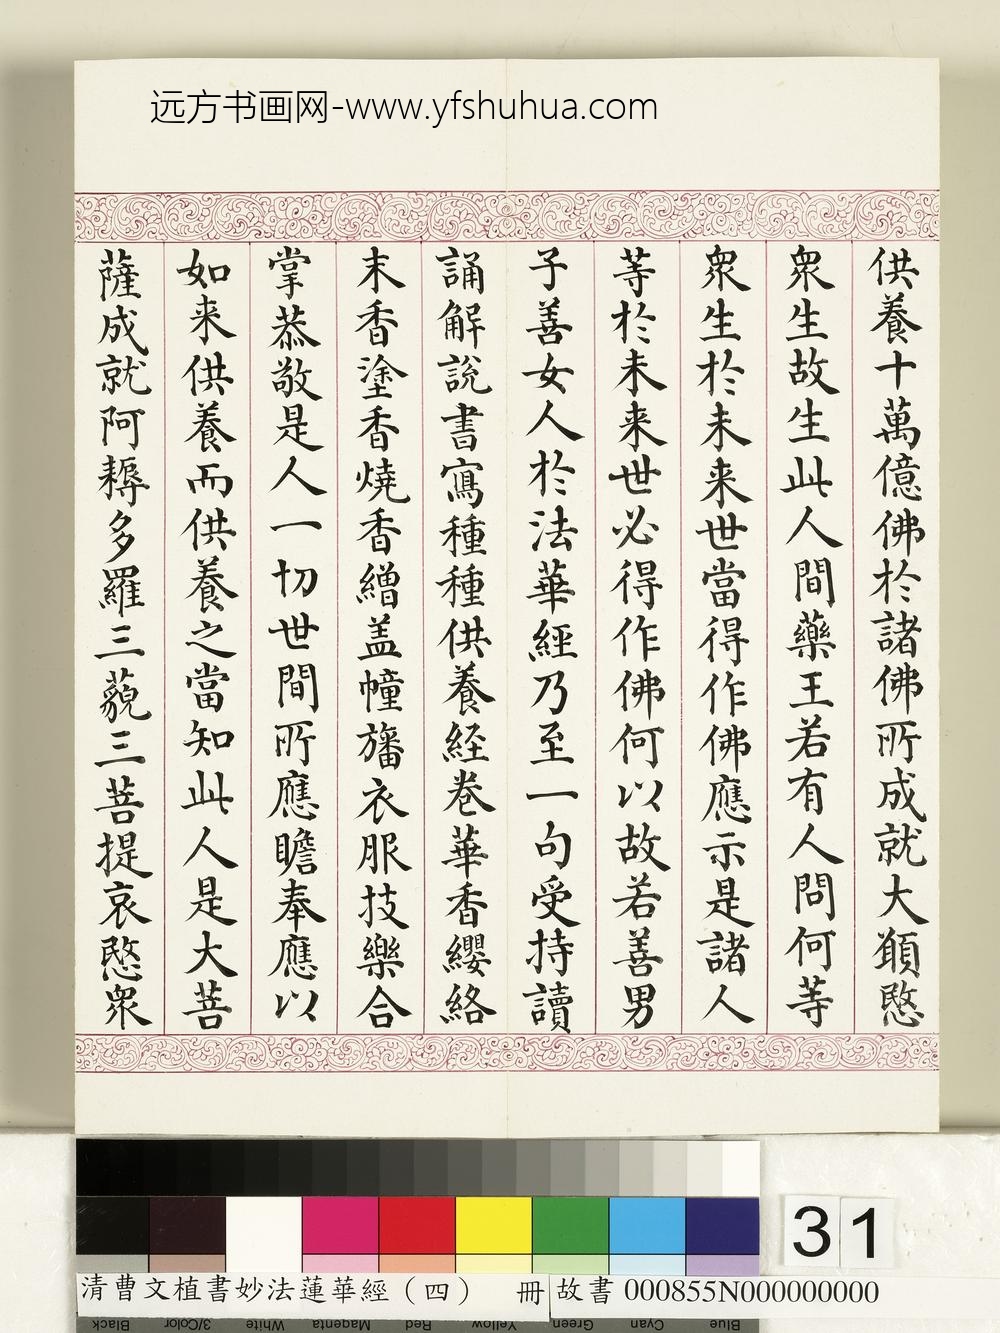 远方书画网-www.yfshuhua.com
供養十萬億佛於諸佛所成就大願愍
眾生故生此人間藥王若有人問何等
眾生於未来世當得作佛應示是諸人
等於未来世必得作佛何以故若善男
子善女人於法華經乃至一句受持讀
誦解説書寫種種供養経卷華香纓絡
末香塗香燒香繒盖幢旛衣服技樂合
掌恭敬是人一切世間所應瞻奉應以
如来供養而供養之當知此人是大菩
薩成就阿耨多羅三藐三菩提哀愍眾
31
清曹文植書妙法蓮華經（四） 冊 故書 000855N000000000
Black 3/Color White Magenta Red Yellow Green Cyan Blue